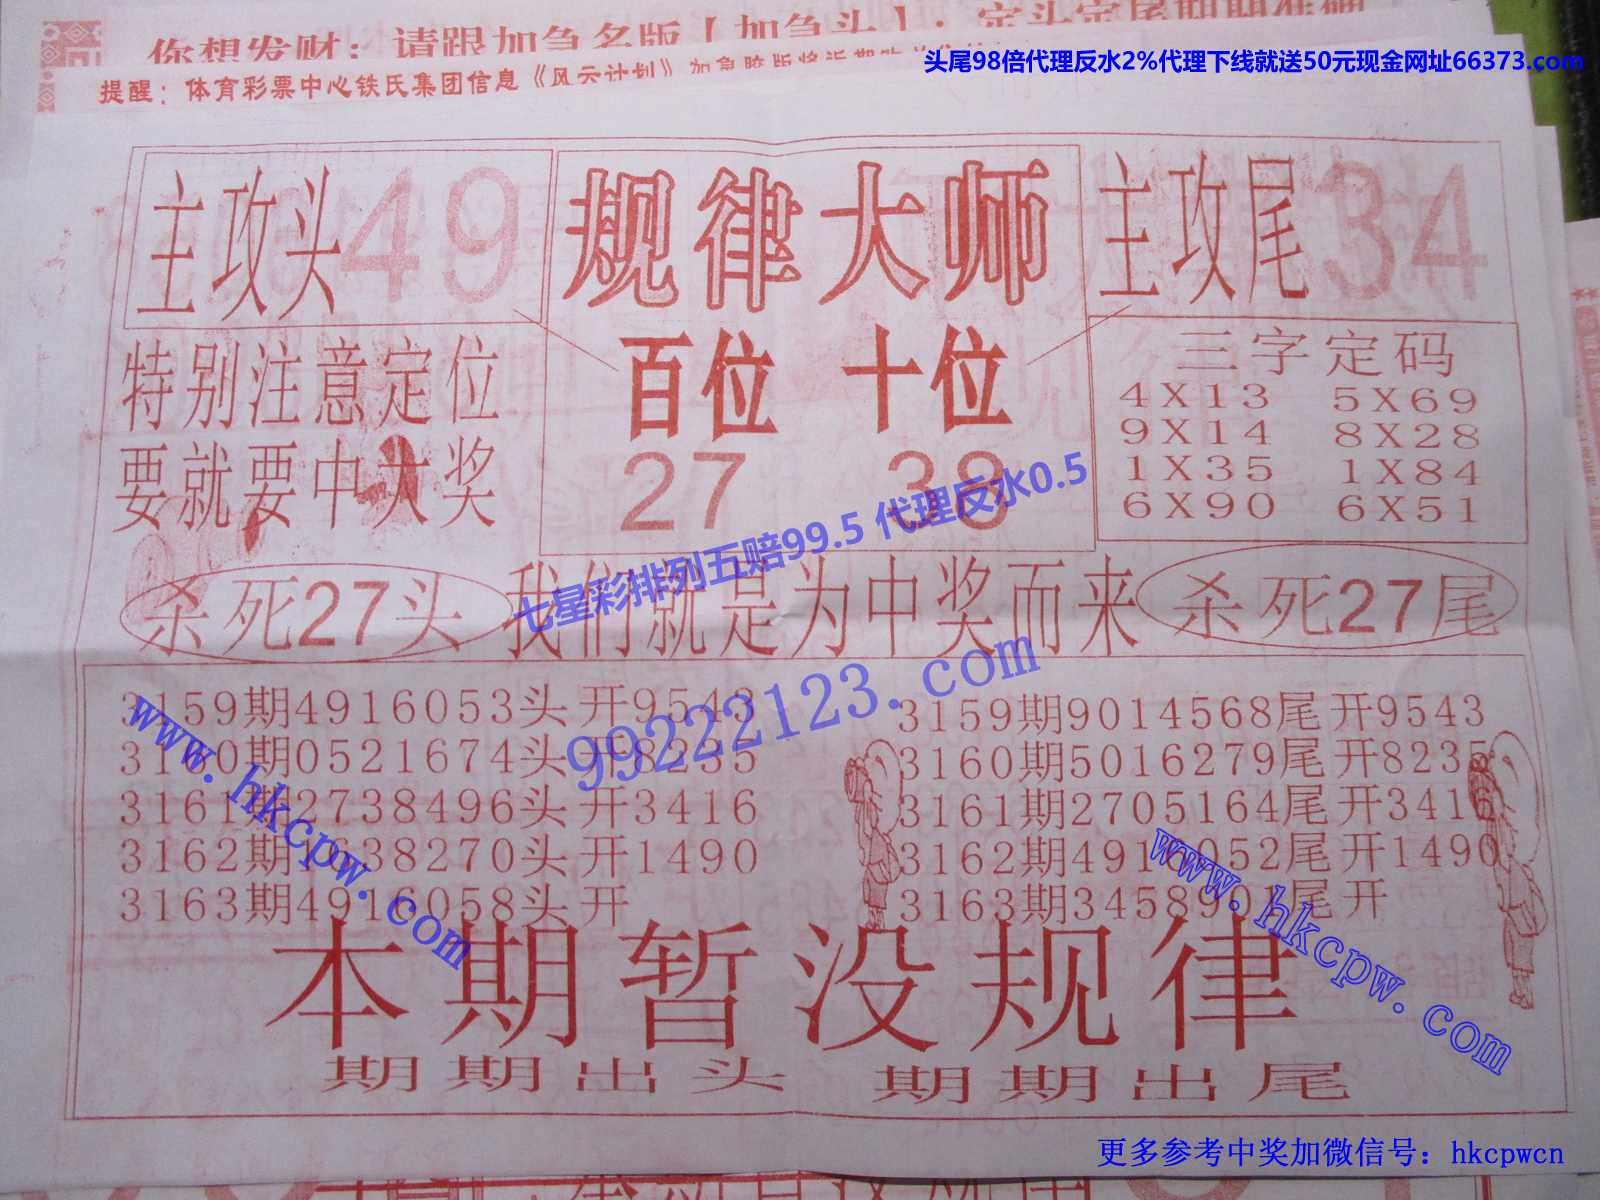 你想发财：请跟加急名版【加急头】：定头定尾期期准确
头尾98倍代理反水2%代理下线就送50元现金网址66373.com
提醒：体育彩票中心铁氏集团信息《风云计划》加急胶版将近期
主攻头49
规律大师
主攻尾34
特别注意定位
要就要中大奖
百位 十位
27 38
三字定码
4X13 5X69
9X14 8X28
1X35 1X84
6X90 6X51
七星彩排列五赔99.5 代理反水0.5
杀死27头
我们就是为中奖而来
杀死27尾
99222123.com
3159期4916053头开9543
3160期0521674头开8235
3161期2738496头开3416
3162期 38270头开1490
3163期4916058头开
3159期9014568尾开9543
3160期5016279尾开8235
3161期2705164尾开3416
3162期491 052尾开1490
3163期3458901尾开
www.hkcpw.com
www.hkcpw.com
本期暂没规律
期期出头 期期出尾
更多参考中奖加微信号：hkcpwcn